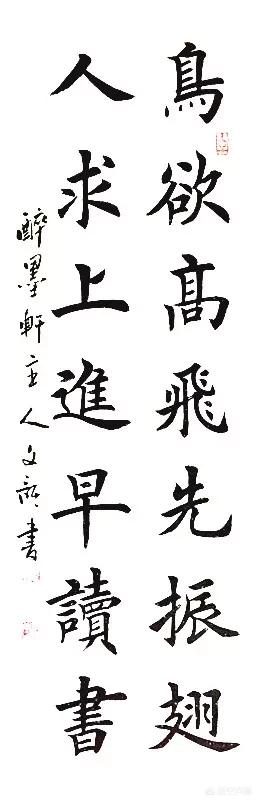 鳥欲高飛先振翅
人求上進早讀書
醉墨軒主人文新書